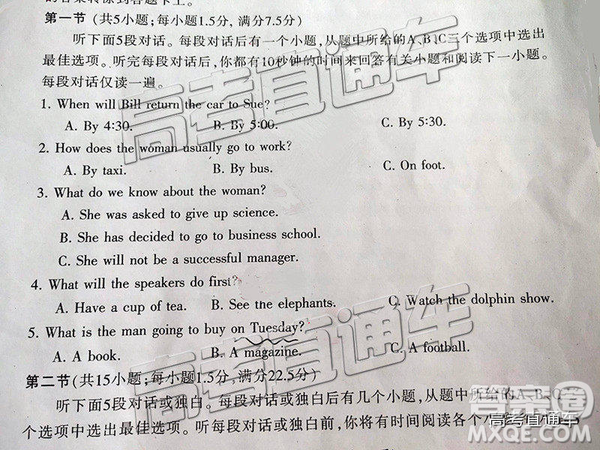 第一节(共5小题;每小题1.5分,满分7.5分)
听下面5段对话。每段对话后有一个小题,从题中所给的A、B、C三个选项中选出
最佳选项。听完每段对话后,你都有10秒钟的时间来回答有关小题和阅读下一小题。
每段对话仅读一遍。
1. When will Bill return the car to Sue?
A. By 4:30. B. By 5:00. C. By 5:30.
2. How does the woman usually go to work?
A. By taxi. B. By bus. C. On foot.
3. What do we know about the woman?
A. She was asked to give up science.
B. She has decided to go to business school.
C. She will not be a successful manager.
4. What will the speakers do first?
A. Have a cup of tea. B. See the elephants. C. Watch the dolphin show.
5. What is the man going to buy on Tuesday?
A. A book. B. A magazine. C. A football.
第二节(共15小题;每小题1.5分,满分22.5分)
听下面5段对话或独白。每段对话或独白后有几个小题,从题中所给的A、B、C
个选项中选出最佳选项。听每段对话或独白前,你将有时间阅读各个小
高考直通车
高考直通车
高考直通车
高考直通车
答案圈
MXQE.COM